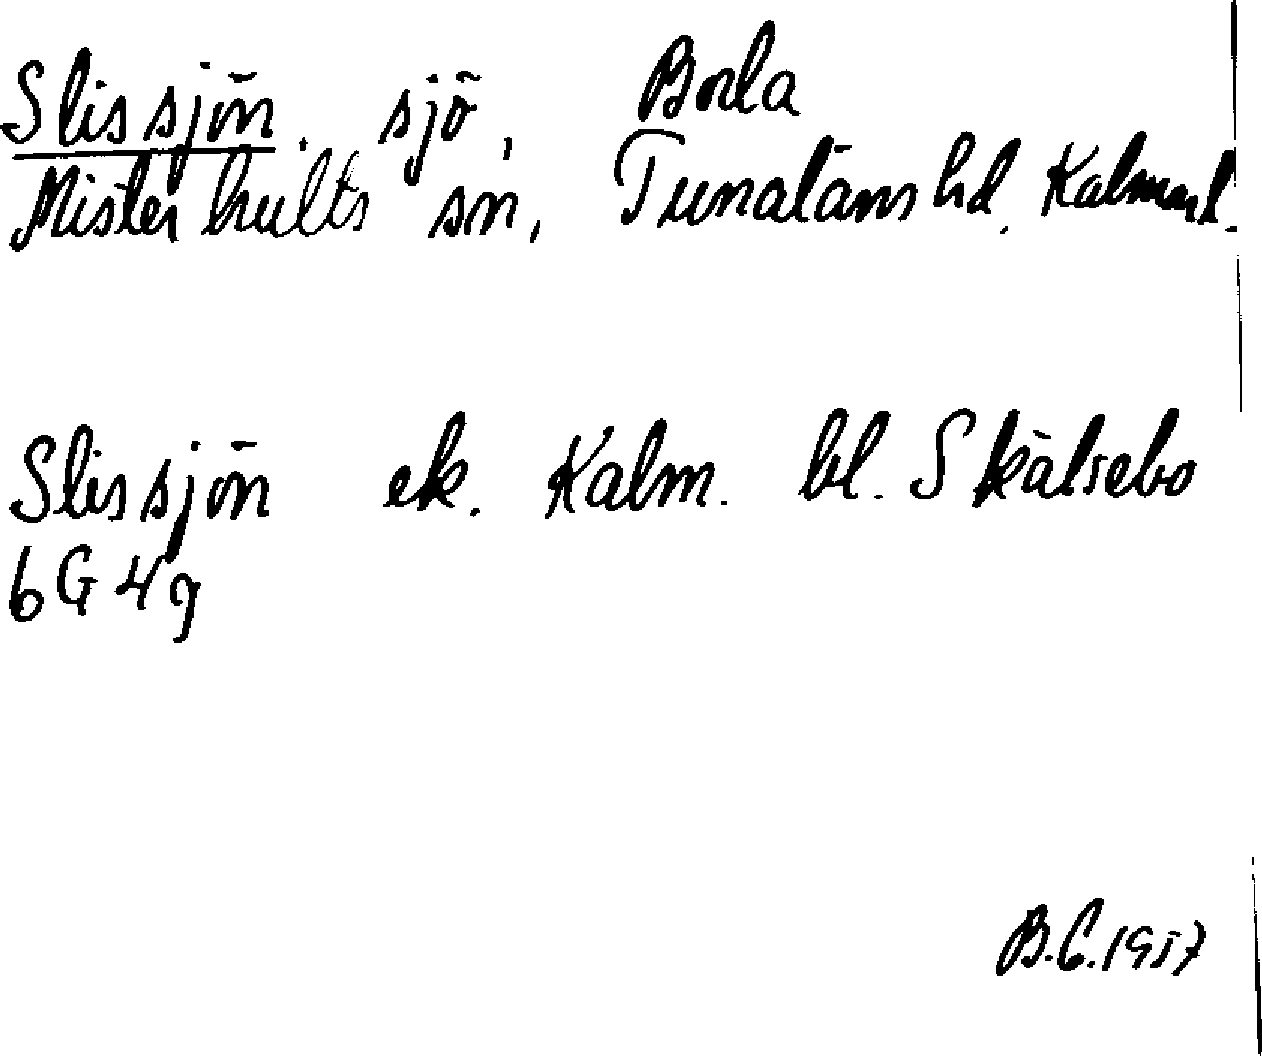 Slissjön. sjö, Borla
Misterhults sn, Tunaläns hd. Kalmar l.
Slissjön ek. Kalm. bl. Skälsebo
6G 4g
B.C. 1957